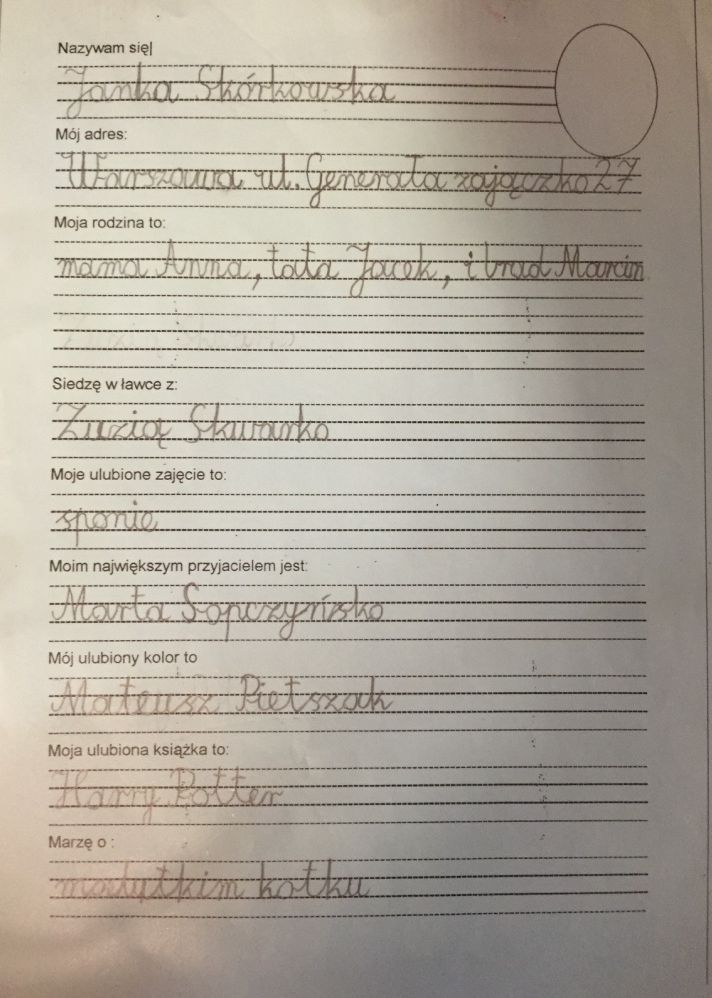 Nazywam się|
Janka Skórkowska
Mój adres:
Warszawa ul. Generała zajączka 27
Moja rodzina to:
mama Anna, tata Jacek, i brad Marcin
Siedzę w ławce z:
Zuzią Skwarko
Moje ulubione zajęcie to:
spanie
Moim największym przyjacielem jest:
Marta Sopczyńska
Mój ulubiony kolor to
Mateusz Pietszak
Moja ulubiona książka to:
Harry Potter
Marzę o :
malutkim kotku